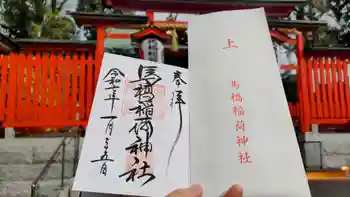 奉拝
馬橋稲荷神社
令和七年一月二十五日
上
馬橋稲荷神社